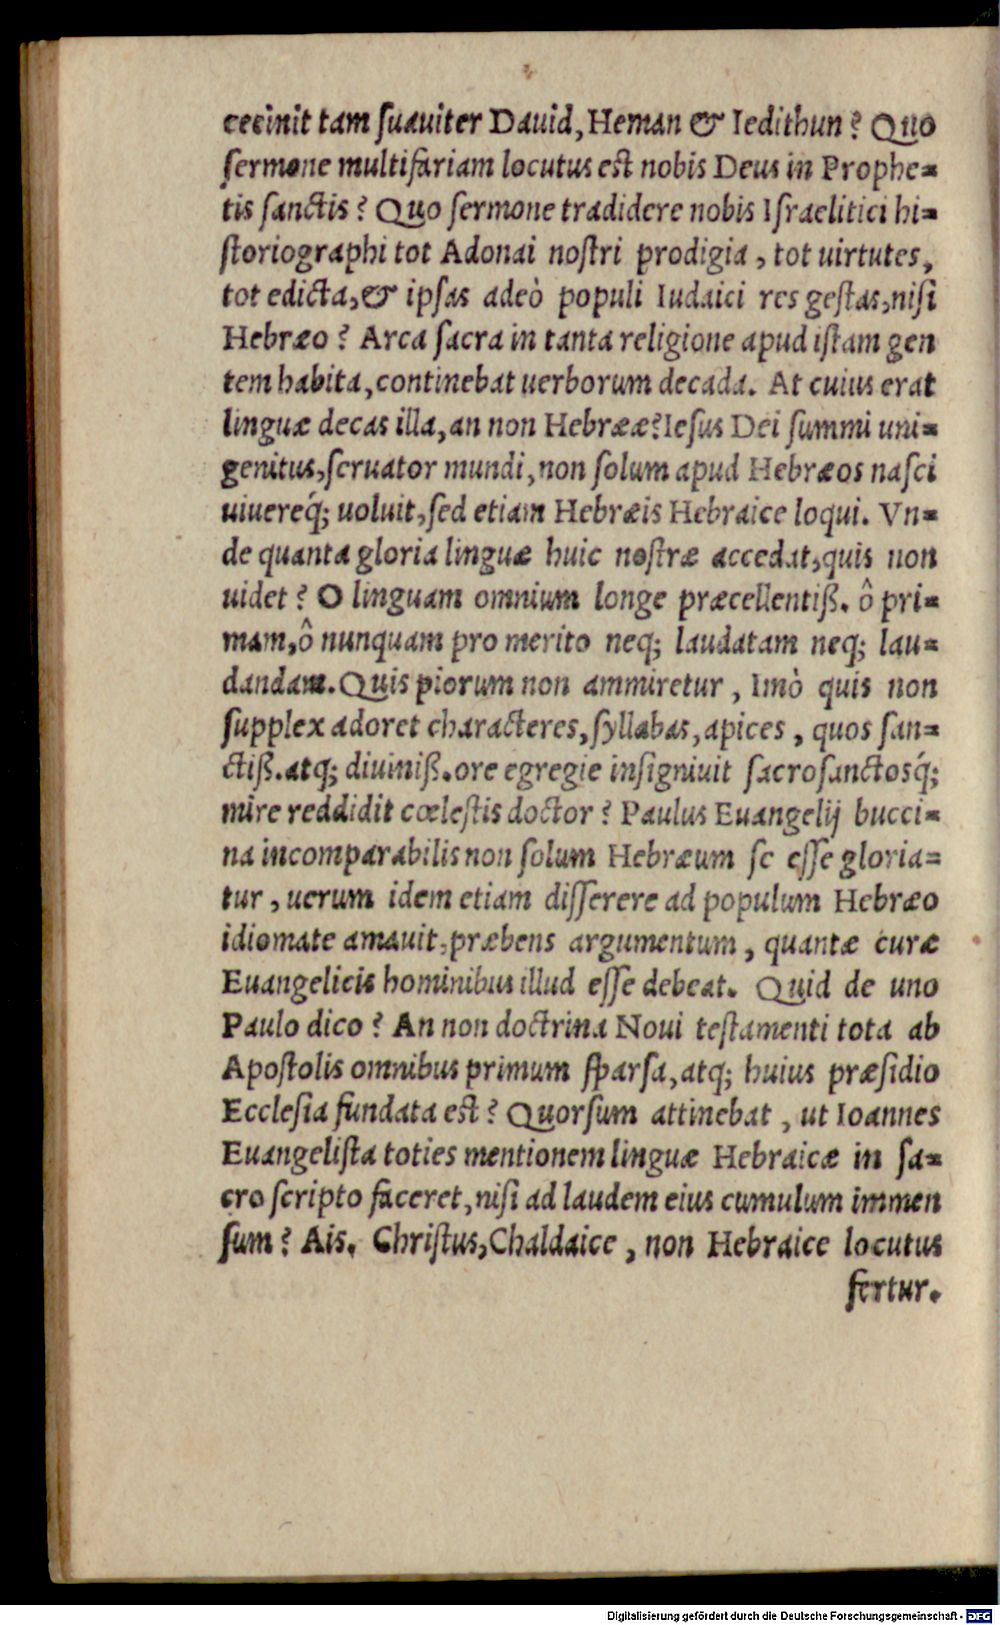 cecinit tam ſuauiter Dauid, Heman & Iedithun? Quo
ſermone multifariam locutus est nobis Deus in Prophe=
tis ſanctis? Quo ſermone tradidere nobis Iſraelitici hi=
ſtoriographi tot Adonai noſtri prodigia, tot uirtutes,
tot edicta, & ipſas adeò populi Iudaici res geſtas, niſi
Hebræo? Arca ſacra in tanta religione apud iſtam gen
tem habita, continebat uerborum decada. At cuius erat
linguæ decas illa, an non Hebrææ? Ieſus Dei ſummi uni=
genitus, ſeruator mundi, non ſolum apud Hebræos naſci
uiuereq́; uoluit, ſed etiam Hebræis Hebraice loqui. Vn=
de quanta gloria linguæ huic noſtræ accedat, quis non
uidet? O linguam omnium longe præcellentiß. ô pri=
mam, ô nunquam pro merito neq; laudatam neq; lau=
dandam. Quis piorum non ammiretur, Imò quis non
ſupplex adoret characteres, ſyllabas, apices, quos ſan=
ctiß. atq; diuiniß. ore egregie inſigniuit ſacroſanctosq́;
mire reddidit cœleſtis doctor? Paulus Euangelij bucci=
na incomparabilis non ſolum Hebræum ſe eſſe gloria=
tur, uerum idem etiam diſſerere ad populum Hebræo
idiomate amauit, præbens argumentum, quantæ curæ
Euangelicis hominibus illud eſſe debeat. Quid de uno
Paulo dico? An non doctrina Noui teſtamenti tota ab
Apoſtolis omnibus primum ſparſa, atq; huius præſidio
Eccleſia fundata est? Quorſum attinebat, ut Ioannes
Euangeliſta toties mentionem linguæ Hebraicæ in ſa=
cro ſcripto faceret, niſi ad laudem eius cumulum immen
ſum? Ais. Chriſtus, Chaldaice, non Hebraice locutus
fertur.
Digitalisierung gefördert durch die Deutsche Forschungsgemeinschaft - DFG